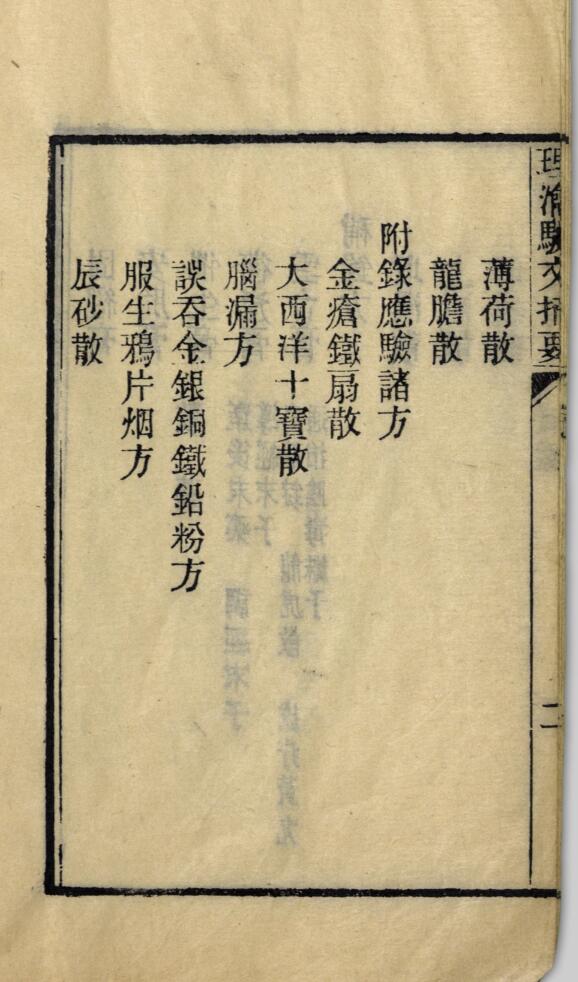 理瀹駢文摘要
二
薄荷散
龍膽散
附錄應驗諸方
金瘡鐵扇散
大西洋十寶散
腦漏方
誤吞金銀銅鐵鉛粉方
服生鴉片烟方
辰砂散